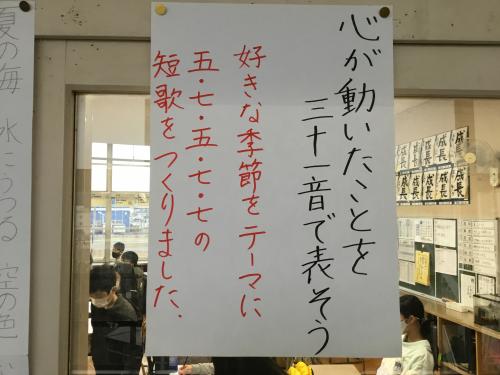 心が動いたことを
三十一音で表そう
好きな季節をテーマに
五・七・五・七・七の
短歌をつくりました。
夏の海 水にうつる 空の色
成長 成長 成長 成長
成長 成長 成長 成長